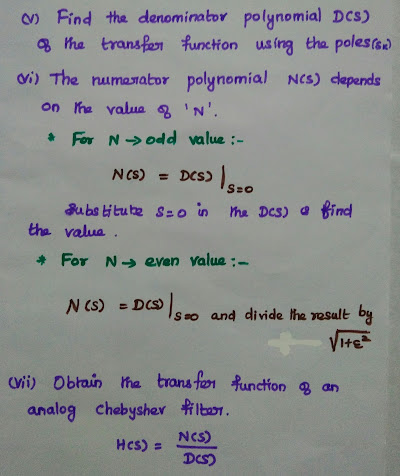 (v) Find the denominator polynomial D(s)
of the transfer function using the poles(sk)
(vi) The numerator polynomial N(s) depends
on the value of 'N'.
* For N → odd value :-
N(s) = D(s) |s=0
Substitute s=0 in the D(s) & find
the value.
* For N → even value :-
N(s) = D(s) |s=0 and divide the result by
√1+ε²
(vii) Obtain the transfer function of an
analog Chebyshev filter.
H(s) = N(s)
D(s)